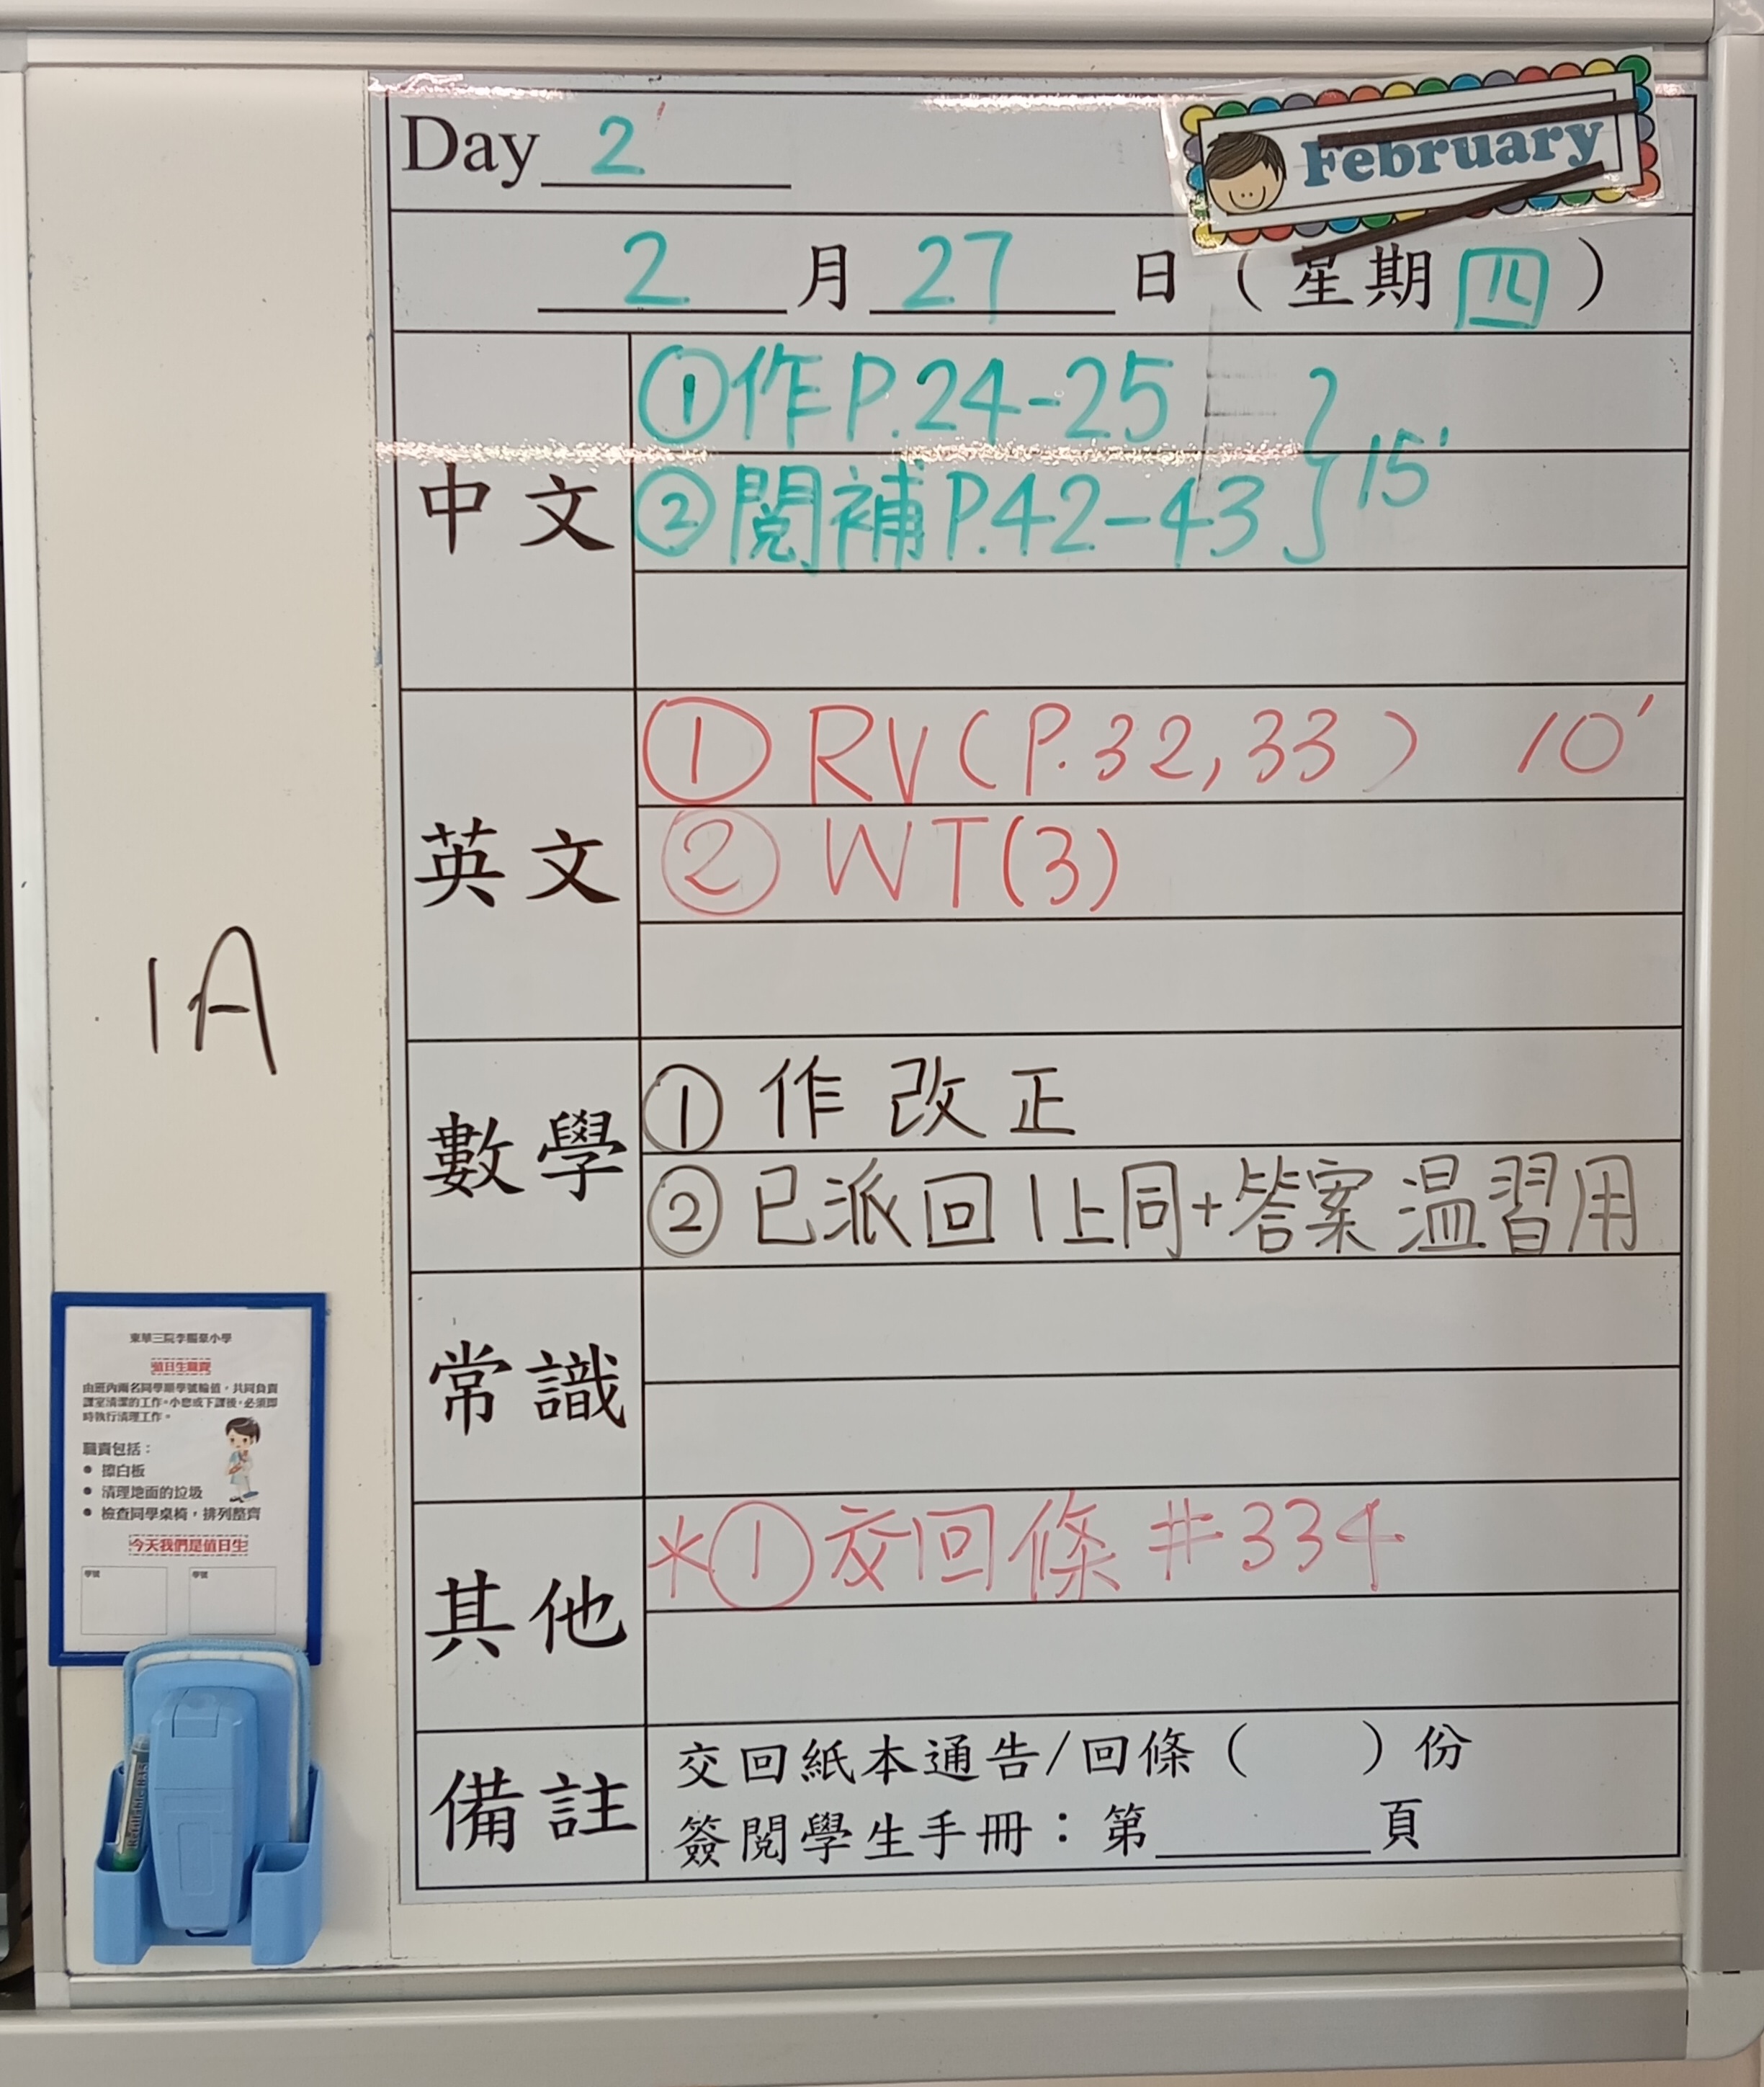 Day 2
February
2月27日(星期四)
中文
①作P.24-25
②閱補P.42-43
15'
英文
① RV(P.32,33) 10'
② WT(3)
數學
① 作改正
② 已派回1上同+答案溫習用
常識
其他
*①交回條 #334
備註
交回紙本通告/回條( )份
簽閱學生手冊:第____頁
1A
值日生職責
由班內兩名同學順學號輪值,共同負責
課室清潔的工作。小息或下課後,必須即
時執行清理工作。
職責包括:
● 擦白板
● 清理地面的垃圾
● 檢查同學桌椅,排列整齊
今天我們是值日生
學號
學號